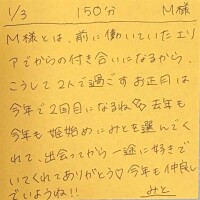 1/3 150分 M様
M様とは、前に働いていたエリ
アでからの付き合いになるから、
こうして2人で過ごすお正月は
今年で2回目になるね 去年も
今年も姫始めにみとを選んでく
れて、出会ってから一途に好きで
いてくれてありがとう♡今年も仲良し
でいようね!!
みと